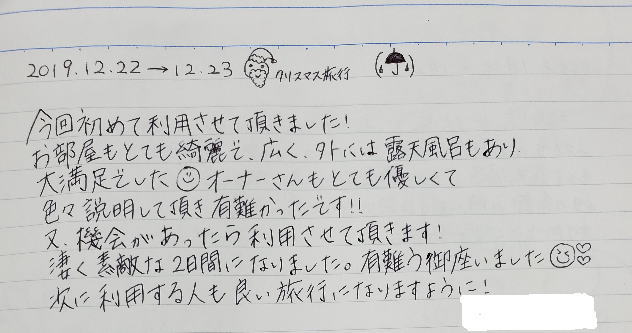 2019.12.22→12.23 クリスマス旅行
今回初めて利用させて頂きました!
お部屋もとても綺麗で、広く、外には露天風呂もあり
大満足でした オーナーさんもとても優しくて
色々説明して頂き有難かったです!!
又、機会があったら利用させて頂きます!
凄く素敵な2日間になりました。有難う御座いました
次に利用する人も良い旅行になりますように!